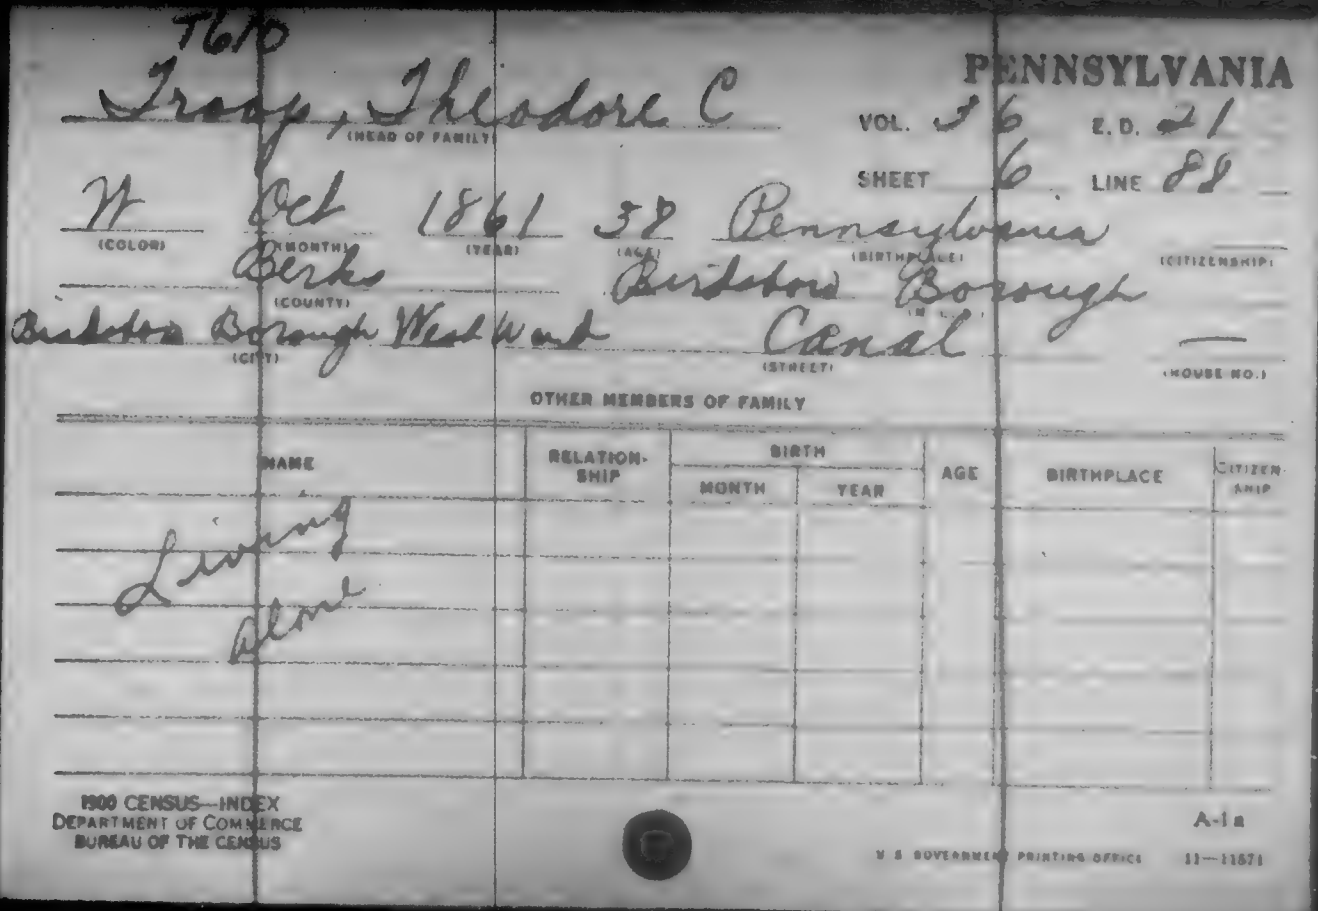 T610
PENNSYLVANIA
Troop, Theodore C
(HEAD OF FAMILY)
VOL. 36 E.D. 21
SHEET 6 LINE 88
W Oct 1861 38 Pennsylvania
(COLOR) (MONTH) (YEAR) (AGE) (BIRTHPLACE) (CITIZENSHIP)
Berks Birdsboro Borough
(COUNTY)
Birdsboro Borough West Ward Canal —
(CITY) (STREET) (HOUSE NO.)
OTHER MEMBERS OF FAMILY
NAME RELATION-SHIP BIRTH MONTH YEAR AGE BIRTHPLACE CITIZEN-SHIP
Living
Alone
1900 CENSUS—INDEX
DEPARTMENT OF COMMERCE
BUREAU OF THE CENSUS
A-1a
U S GOVERNMENT PRINTING OFFICE 11—11571